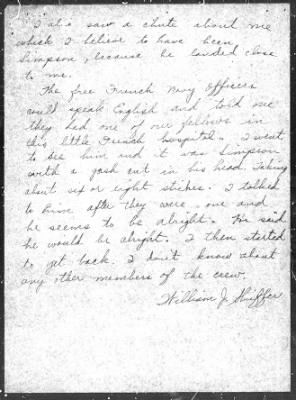 I also saw a chute about me
which I believe to have been
Simpson, because he landed close
to me.
The free French Navy Officers
could speak English and told me
they had one of our fellows in
this little French hospital. I went
to see him and it was Simpson
with a gash cut in his head. Taking
about six or eight stiches. I talked
to him after they were done and
he seems to be alright. He said
he would be alright. I then started
to get back. I don't know about
any other members of the crew.
William J. Shiffer